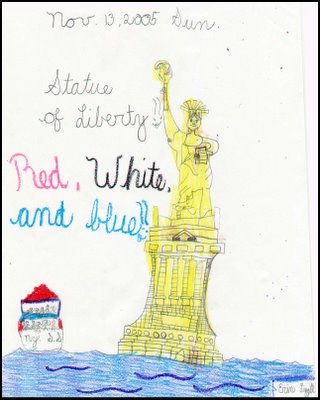 Nov. 13, 2005 Sun.
Statue
of Liberty!!
Red, White,
and blue!!
Erin